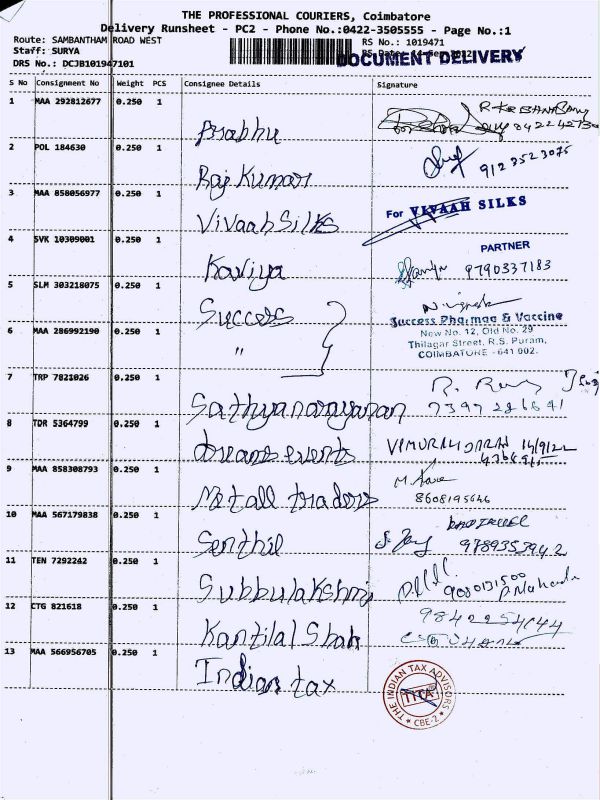 THE PROFESSIONAL COURIERS, Coimbatore
Delivery Runsheet - PC2 - Phone No.:0422-3505555 - Page No.:1
Route: SAMBANTHAM ROAD WEST
RS No.: 1019471
Staff: SURYA
DOCUMENT DELIVERY
DRS No.: DCJB101947101
S No Consignment No Weight PCS Consignee Details Signature
1 MAA 292812677 0.250 1 Prabhu
2 POL 184630 0.250 1 Raj Kumar 9128523075
3 MAA 858056977 0.250 1 Vivaah Silks For VIVAAH SILKS
PARTNER
4 SVK 10309001 0.250 1 Kaviya 9790337183
5 SLM 303218075 0.250 1 Success
Success Pharmaa & Vaccine
New No. 12, Old No. 29
6 MAA 286992190 0.250 1 "
Thilagar Street, R.S. Puram,
COIMBATORE - 641 002.
7 TRP 7821026 0.250 1 Sathyanarayanan
8 TDR 5364799 0.250 1 dreams events 14/9/22
9 MAA 858308793 0.250 1 Metall traders 8608195646
10 MAA 567179838 0.250 1 Senthil
11 TEN 7292242 0.250 1 Subbulakshmi
12 CTG 821618 0.250 1 Kantilal Shah
13 MAA 566956705 0.250 1 Indian tax
THE INDIAN TAX ADVISORS
TITA
CBE-2